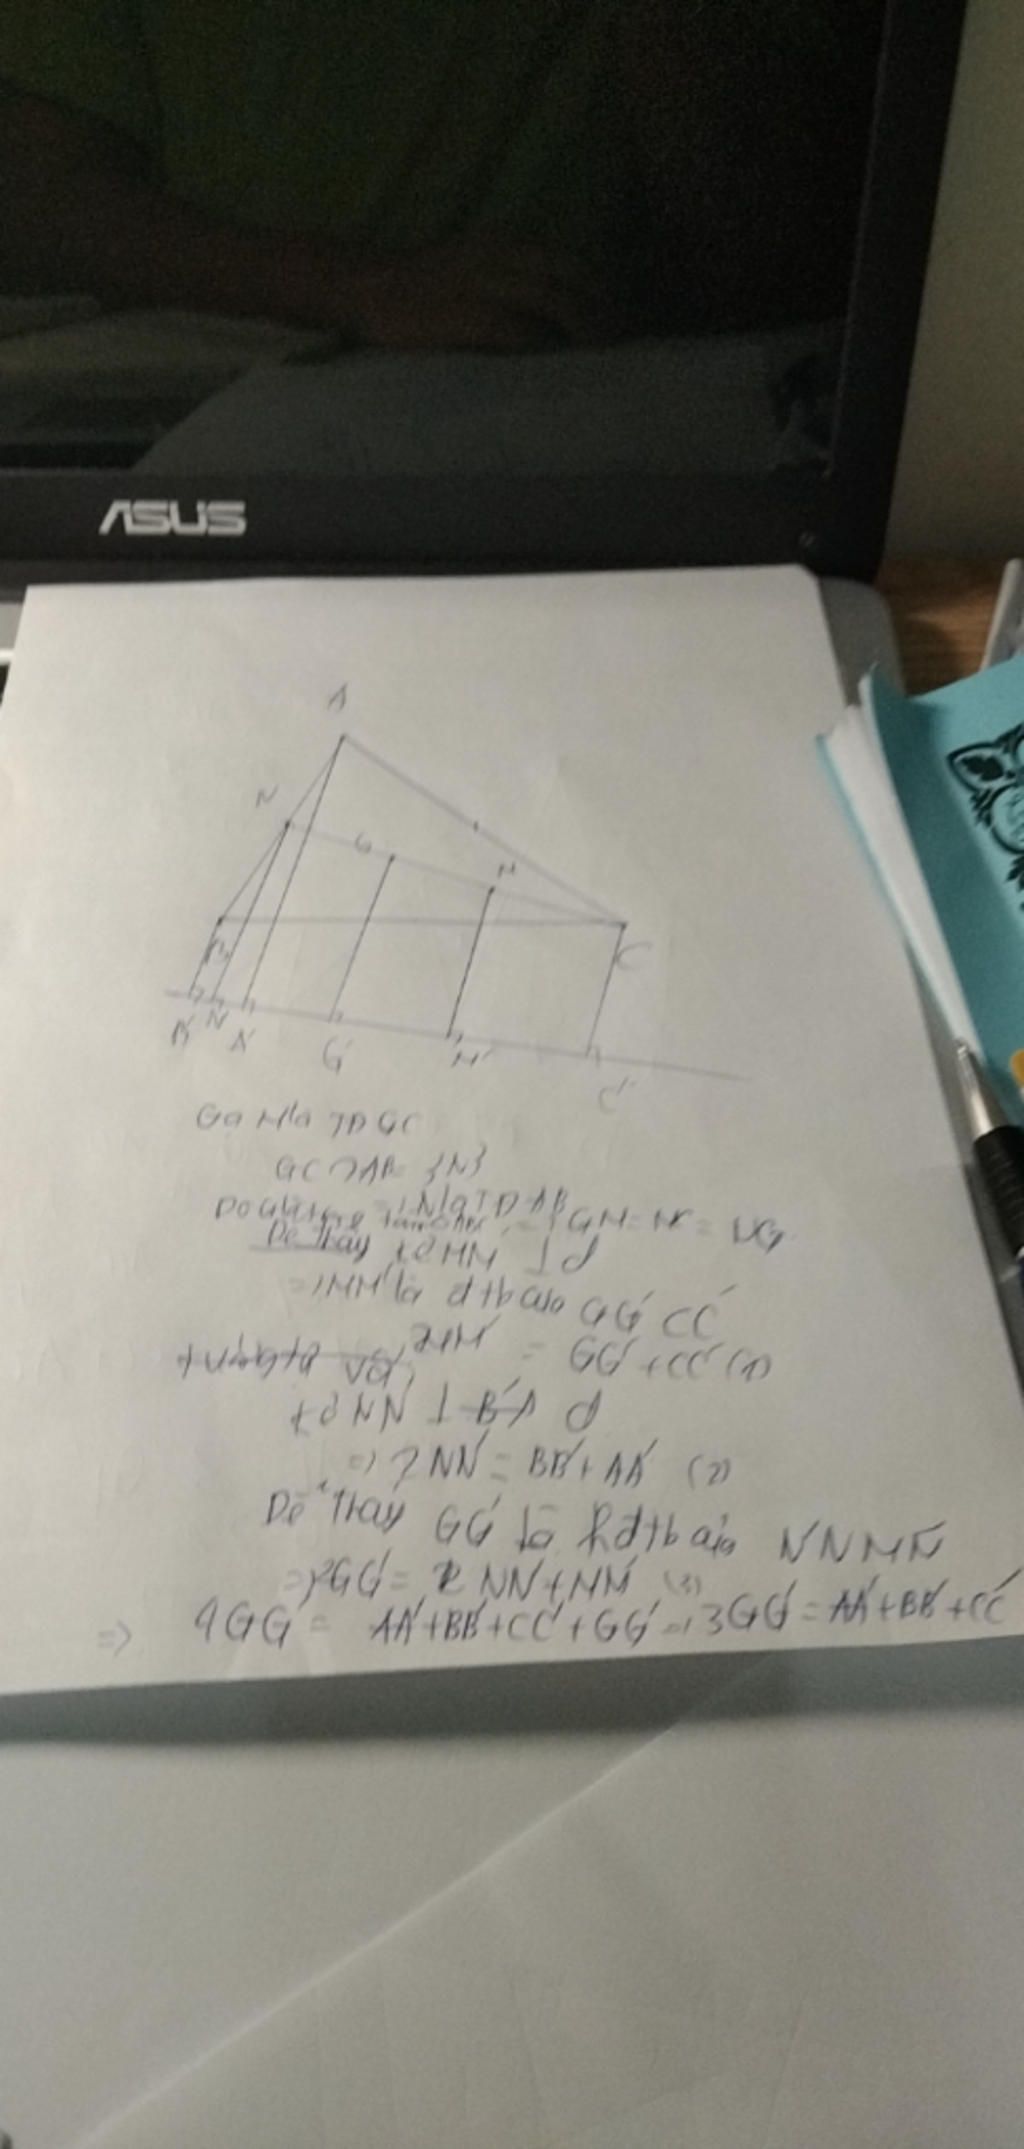 ASUS
A
N
G
M
B
C
B' N' A' G' M' C'
Gọi M là TĐ GC
GC ∩ AB = {N}
Do G là trọng tâm △ABC => N là TĐ AB => GM = MC = NG
Dễ thấy kẻ MM' ⊥ d
=> MM' là đtb của GG' CC'
tương tự với 2MM' = GG' + CC' (1)
kẻ NN' ⊥ B'A d
=> 2NN' = BB' + AA' (2)
Dễ thấy GG' là đtb của N'NMM'
=> 2GG' = NN' + MM' (3)
=> 4GG' = AA' + BB' + CC' + GG' => 3GG' = AA' + BB' + CC'